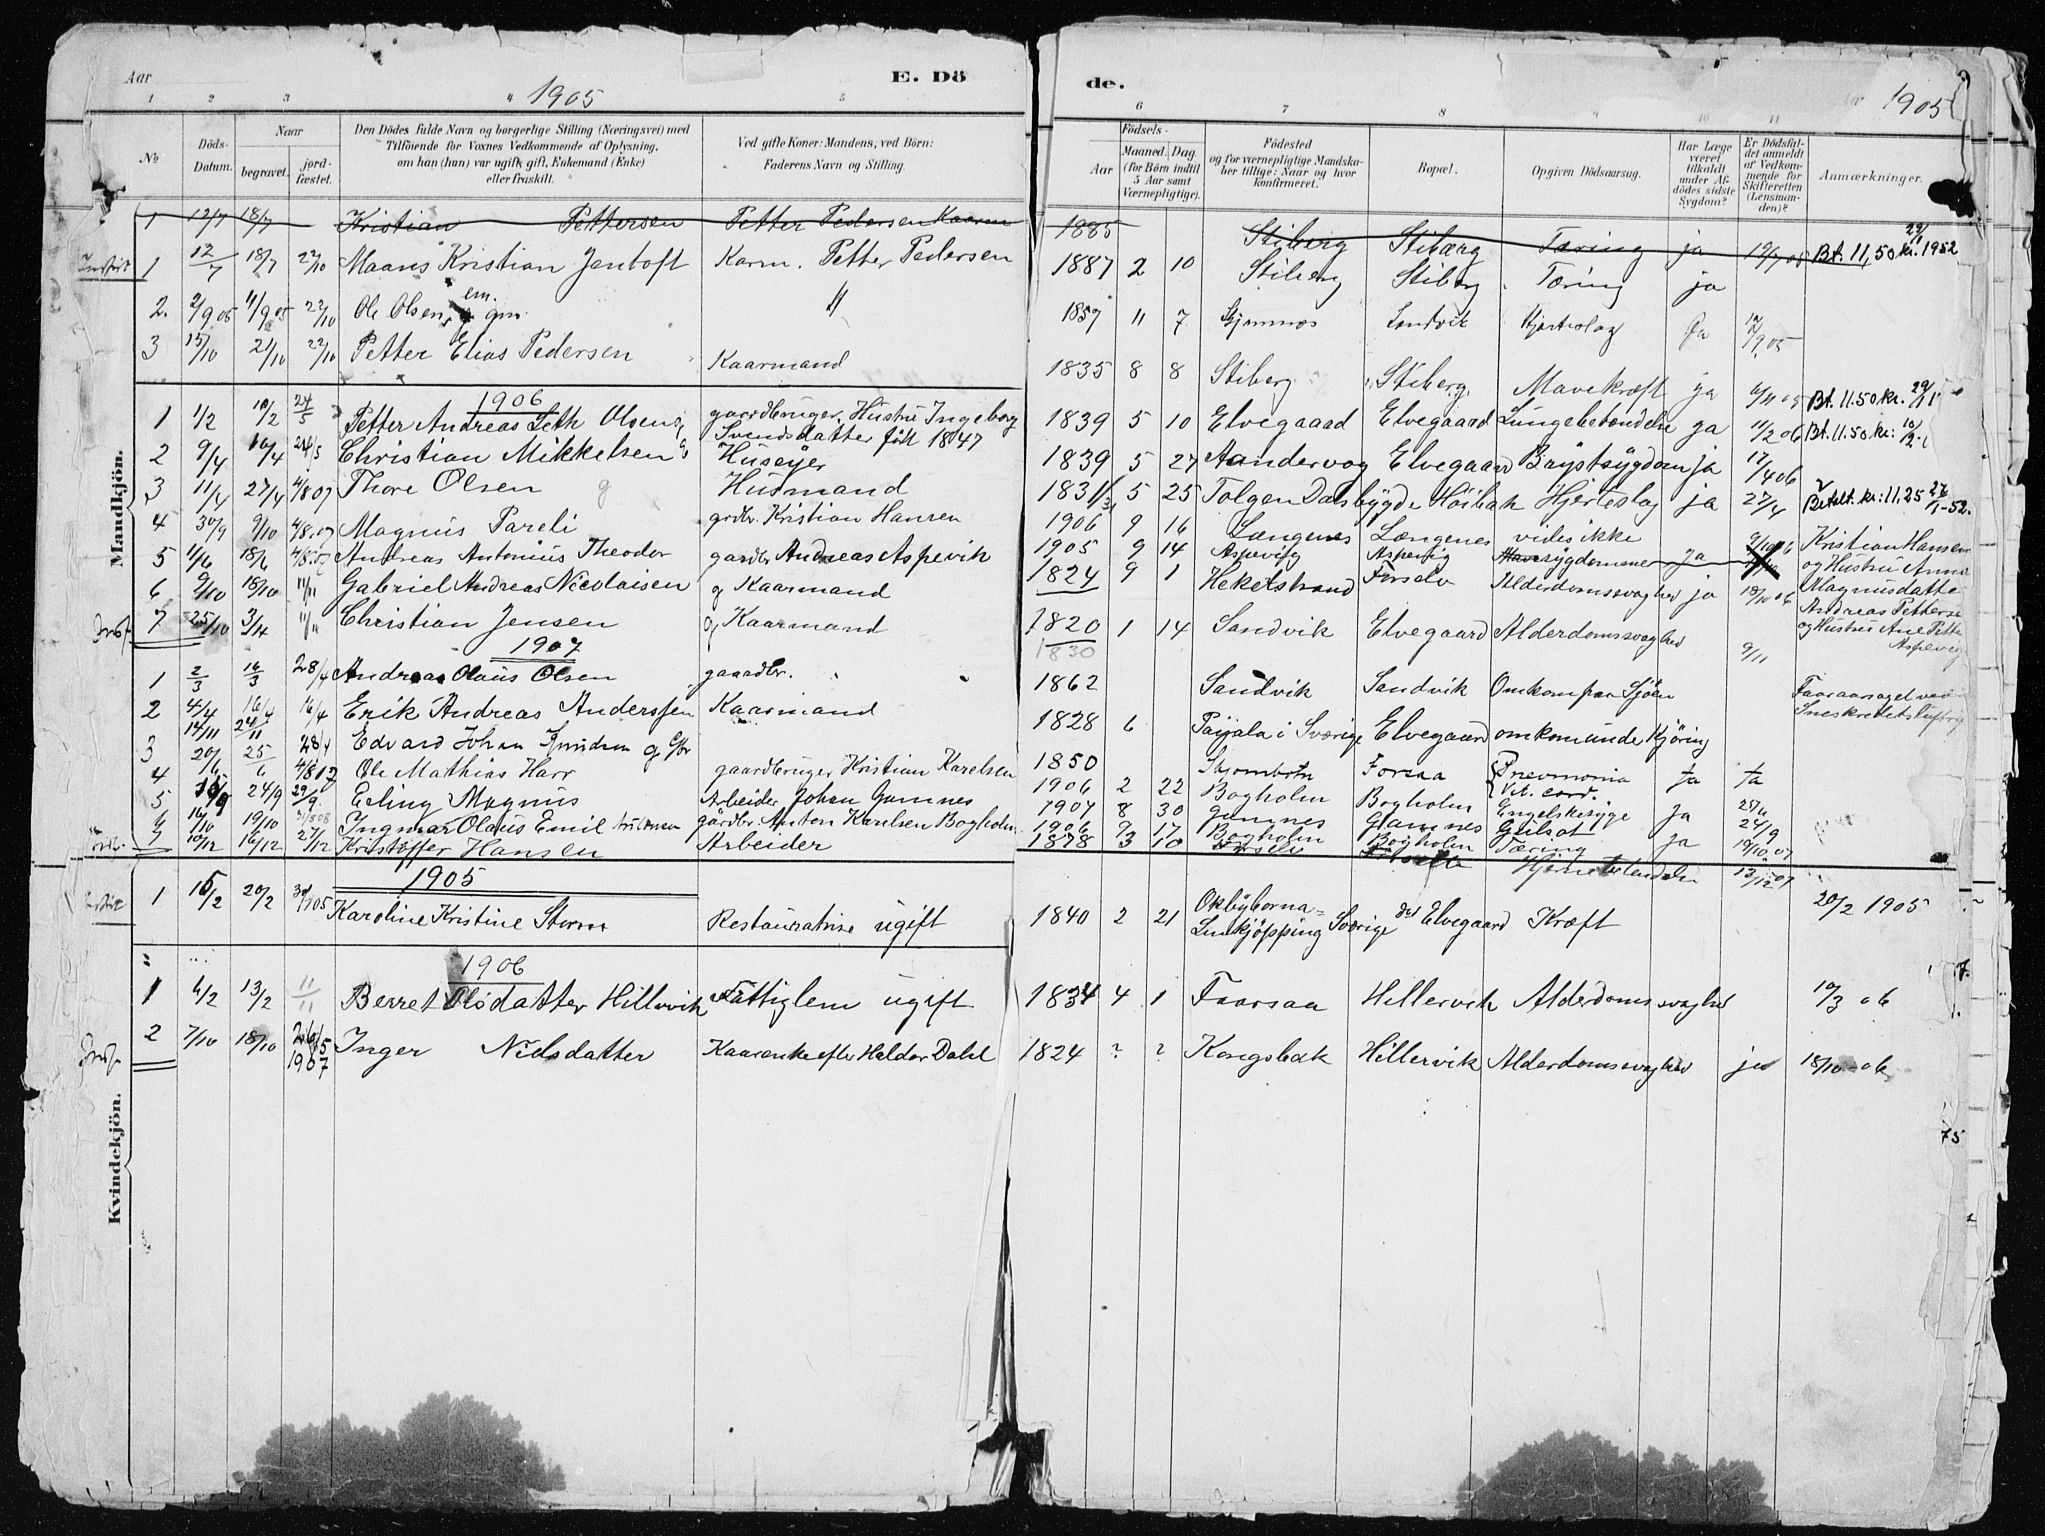 Aar
E. Dö
de.
1905
1905
1 2 3 4 5 6 7 8 10 11
No
Döds-Datum.
Naar
begravet.
jord-fæstet.
Den Dödes fulde Navn og borgerlige Stilling (Næringsvei) med
Tilföiende for Voxnes Vedkommende af Oplysning,
om han (hun) var ugift, gift, Enkemand (Enke)
eller fraskilt.
Ved gifte Koner: Mandens, ved Börn:
Faderens Navn og Stilling.
Födsels-
Aar
Maaned. Dag.
(for Börn indtil
5 Aar samt
Værnepligtige).
Födested
og for værnepligtige Mandska-
ber tillige: Naar og hvor
konfirmeret.
Bopæl.
Opgiven Dödsaarsag.
Har Læge
været
tilkaldt
under Af-
dödes sidste
Sygdom?
Er Dödsfal-
det anmeldt
af Vedkom-
mende for
Skifteretten
(Lensman-
den)?
Anmærkninger.
Mandkjön.
1 12/7 18/7 Kristian Pettersen Petter Pedersen Kaarm 1885 Stiberg Stibærg Tæring ja
1 12/7 18/7 22/10 Maans Kristian Jentoft Karm. Petter Pedersen 1887 2 10 Stiberg Stiberg Tæring ja Bt. 11,50 kr. 29/11 1952
2. 2/9 05 11/9 05 22/10 Ole Olsen, em. gm. 1859 11 7 Sandvik Hjerteslag Ja 12/9 05
3 15/10 21/10 22/10 Petter Elias Pedersen Kaarmand 1835 8 8 Stiberg Stiberg Mavekræft ja Bt. 11.50 kr.
1906
1 1/2 10/2 24/5 Petter Andreas Seth Olsen g gaardbruger. Hustru Ingeborg 1839 5 10 Elvegaard Elvegaard Lungebetændelse ja 11/2 06 Bt. 11.50 kr.
Svendsdatter født 1847
2 9/4 16/4 24/5 Christian Mikkelsen G Huseyer 1839 5 27 Aandervag Elvegaard Brystsygdom ja 17/4 06
3 11/4 27/4 4/8 07 Thore Olsen g Husmand 1831 5 25 Tolgen Dalsbygde Höibak Hjerteslag ja 27/4 Betalt. kr: 11.25
4 30/9 9/10 4/8.07 Magnus Pareli grdbr. Kristian Hansen 1906 9 16 Langenes Længenes vides ikke 9/10 06 Kristian Hansen
og Hustru Anna
Magnusdatte
5 11/6 18/6 4/8.07 Andreas Antonius Theodor gaardbr Andreas Aspevik 1905 9 14 Aspevig Aspevig ja
Andreas Petterse
og Hustru Ane Pette
Aspeveg
6 9/10 18/10 11/11 Gabriel Andreas Nicolaisen g Kaarmand 1824 9 1 Hekelstrand Forselv Alderdomssvaghed ja 18/10 06
7 25/10 3/11 11/11 Christian Jensen g Kaarmand 1820 1 14 Sandvik Elvegaard Alderdomssvaghed 9/11
1830
1907
1 2/3 16/3 28/4 Andreas Olaus Olsen gaardbr. 1862 Sandvik Sandvik Omkom paa Sjöen
2 4/4 16/4 16/4 Erik Andreas Anderssen Kaarmand 1828 6 Pajala i Sverige Elvegaard omkom unde Kjöring
14/11 24/11
3 20/6 25/6 28/4 Edvard Johan Knudsen g 1850 Skjombotn Forsaa Pneumonia Vit. cord. Ja Ja
4 4/8 07 Ole Mathias Harr gaardbruger Kristian Karelsen 1906 2 22 Bogholm Bogholm Engelskesyge Ja
5 24/9 29/9 Erling Magnus Arbeider Johan Gamnes 1907 8 30 Gamnes Gamnes Gulsot 24/9
6 16/10 19/10 31/5 08 Ingmar Olaus Emil gårdbr. Anton Karelsen Bogholm 1906 9 17 Bogholm Bogholm Tæring ja 19/10 07
7 10/12 16/12 27/12 Kristoffer Hansen Arbeider 1878 3 10 Hjernebetændelse 13/12 07
Kvindekjön.
1905
1 15/2 20/2 Karoline Kristine Storm Restauratrise ugift 1840 2 21 Linkjöpping Sverige Elvegaard Kræft 20/2 1905
1906
1 6/2 13/2 11/11 Berret Olsdatter Hillervik Fattiglem ugift 1834 4 1 Faarsaa Hillervik Alderdomssvaghed 10/3 06
2 7/10 18/10 26/5 1907 Inger Nilsdatter Kaarenke efter Haldor Dahl 1824 ? ? Kongsbak Hillervik Alderdomssvaghed ja 18/10 06
75